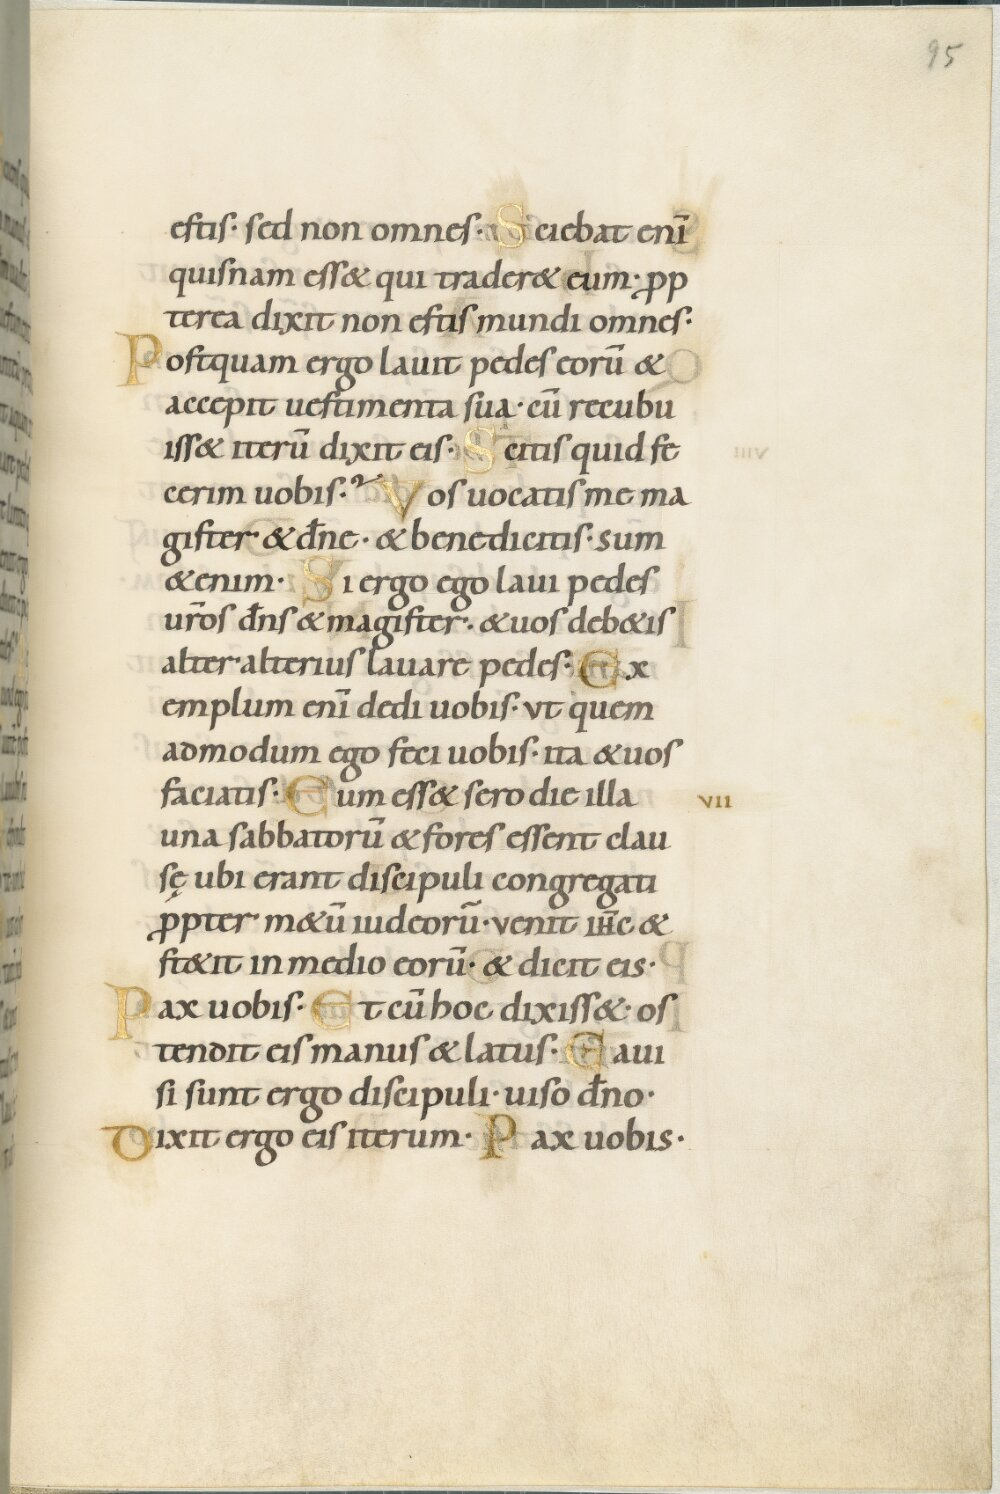 95
estis· sed non omnes· Sciebat enī
quisnam ess& qui trader& eum· ꝓp
terea dixit non estis mundi omnes·
Postquam ergo lauit pedes eorū &
accepit uestimenta sua· cū recubu
iss& iterū dixit eis· Scitis quid fe
cerim uobis·? Vos uocatis me ma
gister & dn̄e· & benedicitis· sum
&enim· Si ergo ego laui pedes
ur̄os dn̄s & magister· & uos deb&is
alter alterius lauare pedes· Ex
emplum enī dedi uobis· vt quem
admodum ego feci uobis· ita & uos
faciatis· Cum ess& sero die illa VII
una sabbatorū & fores essent clau
sę ubi erant discipuli congregati
ꝓpter m&ū iudeorū· venit ih̄c &
st&it in medio eorū· & dicit eis·
Pax uobis· Et cū hoc dixiss&· os
tendit eis manus & latus· Gaui
si sunt ergo discipuli· uiso dn̄o·
Dixit ergo eis iterum· Pax uobis·